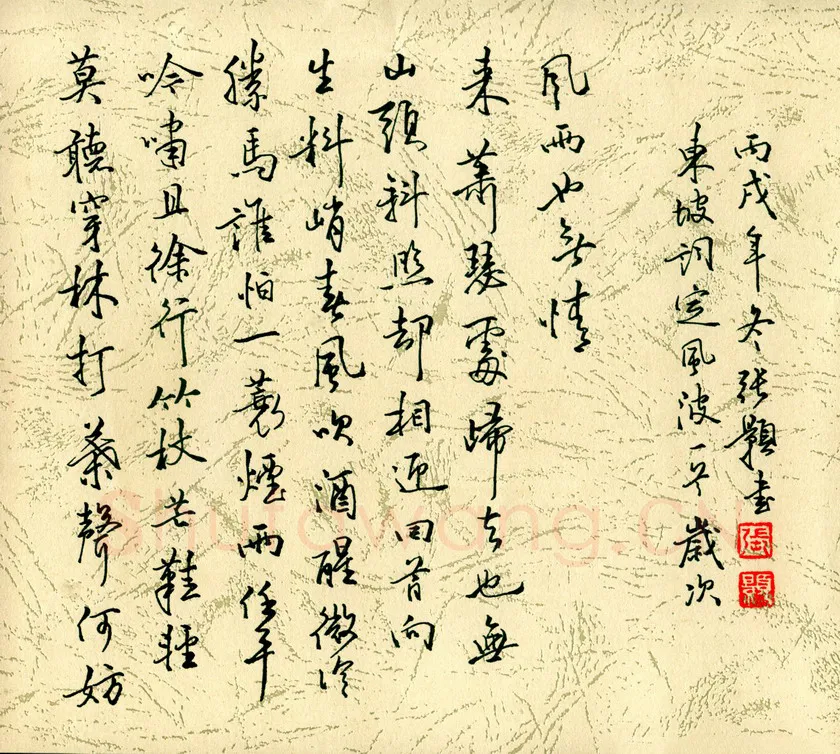 莫聽穿林打葉聲何妨
吟嘯且徐行竹杖芒鞋輕
勝馬誰怕一蓑煙雨任平
生料峭春風吹酒醒微冷
山頭斜照却相迎回首向
來蕭瑟處歸去也無
风雨也无情
東坡詞定風波一首歲次
丙戌年冬張書
Shufawang.CN